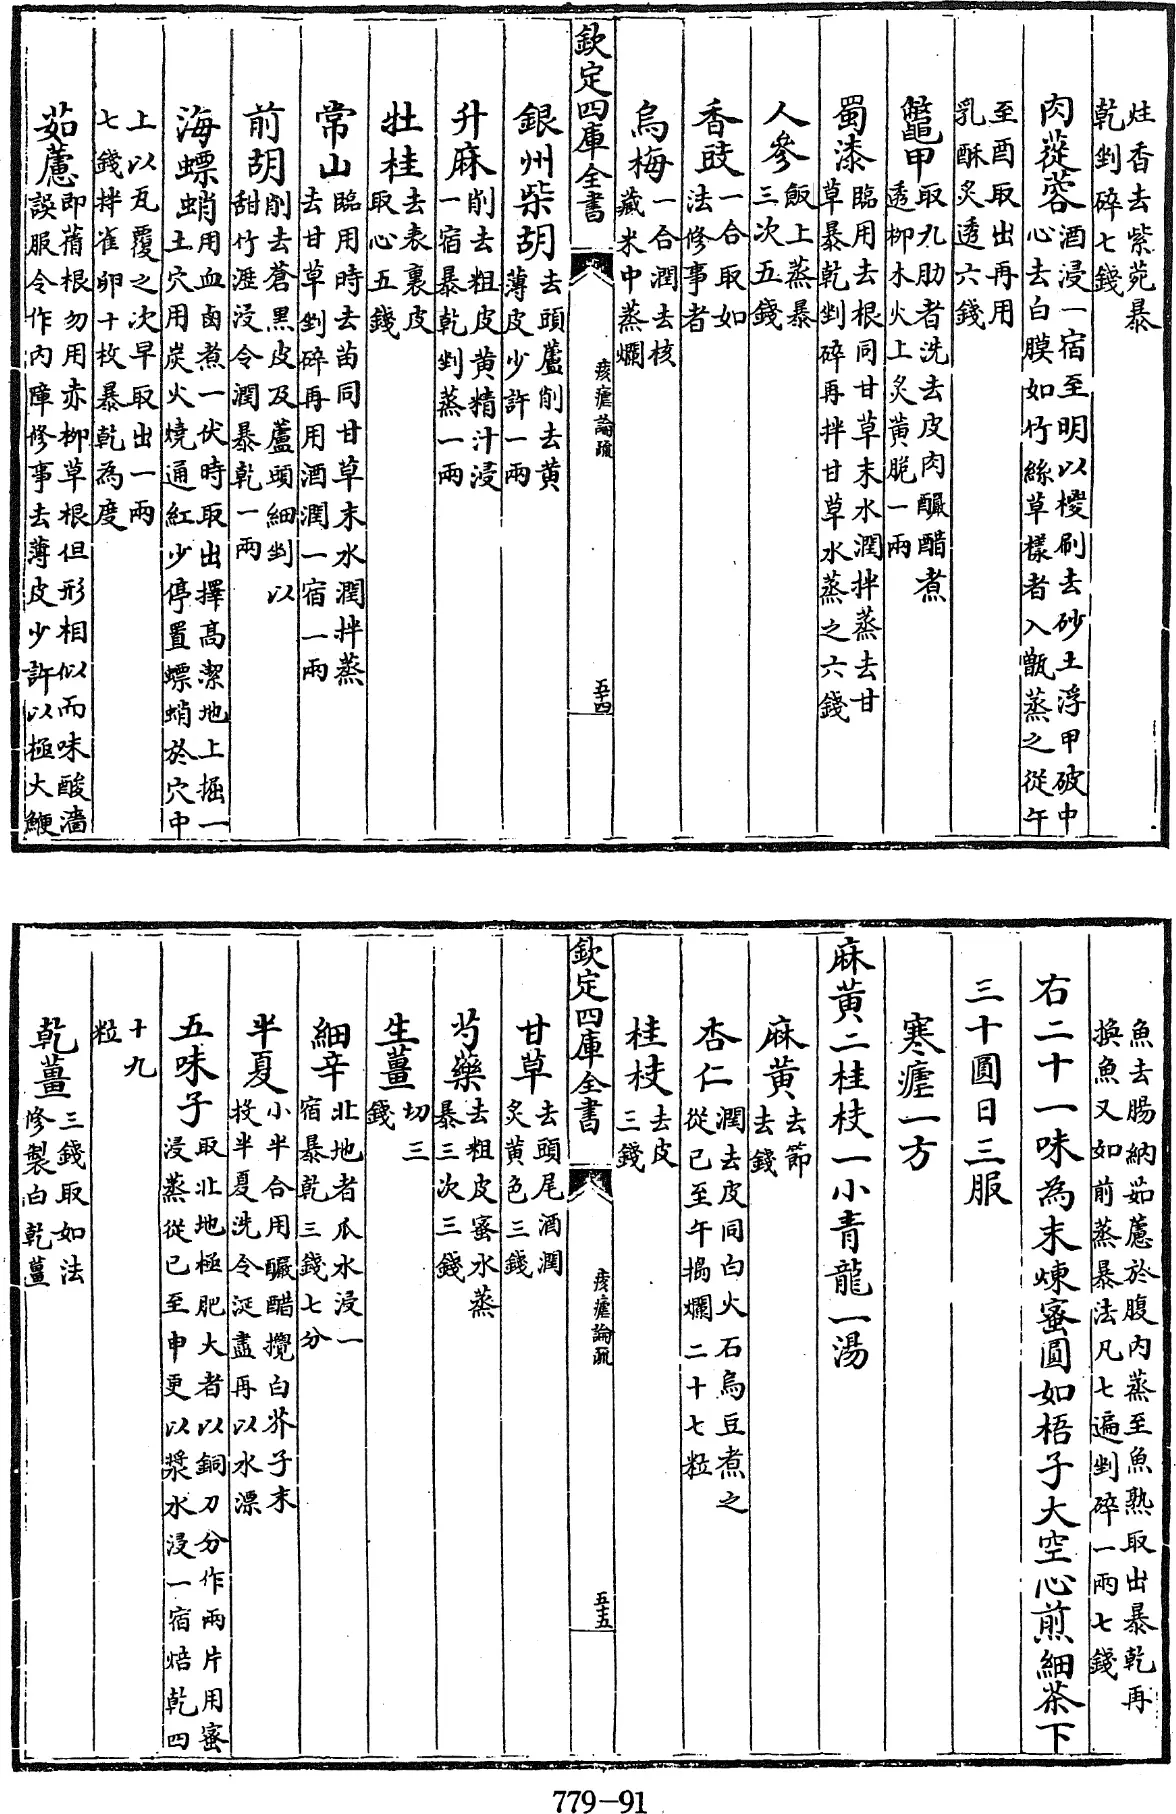 炷香去紫菀暴
乾剉碎七錢
肉蓯蓉酒浸一宿至明以椶刷去砂土浮甲破中
心去白膜如竹絲草樣者入甑蒸之從午
至酉取出再用
乳酥炙透六錢
鼈甲取九肋者洗去皮肉醶醋煮
透柳木火上炙黃脆一兩
蜀漆臨用去根同甘草末水潤拌蒸去甘
草暴乾剉碎再拌甘草水蒸之六錢
人參飯上蒸暴
三次五錢
香豉一合取如
法修事者
烏梅一合潤去核
藏米中蒸爛
欽定四庫全書
痎瘧論疏
五十四
銀州柴胡去頭蘆削去黃
薄皮少許一兩
升麻削去粗皮黃精汁浸
一宿暴乾剉蒸一兩
牡桂去表裏皮
取心五錢
常山臨用時去苗同甘草末水潤拌蒸
去甘草剉碎再用酒潤一宿一兩
前胡削去蒼黑皮及蘆頭細剉以
甜竹瀝浸令潤暴乾一兩
海螵蛸用血鹵煮一伏時取出擇高潔地上掘一
土穴用炭火燒通紅少停置螵蛸於穴中
上以瓦覆之次早取出一兩
七錢拌雀卵十枚暴乾為度
茹藘即蒨根勿用赤柳草根但形相似而味酸濇
誤服令作內障修事去薄皮少許以極大鯾
魚去腸納茹藘於腹內蒸至魚熟取出暴乾再
換魚又如前蒸暴法凡七遍剉碎一兩七錢
右二十一味為末煉蜜圓如梧子大空心煎細茶下
三十圓日三服
寒瘧一方
麻黃二桂枝一小青龍一湯
麻黃去節
去錢
杏仁潤去皮同白火石烏豆煮之
從巳至午搗爛二十七粒
桂枝去皮
三錢
欽定四庫全書
痎瘧論疏
五十五
甘草去頭尾酒潤
炙黃色三錢
芍藥去粗皮蜜水蒸
暴三次三錢
生薑切三
錢
細辛北地者瓜水浸一
宿暴乾三錢七分
半夏小半合用醶醋攪白芥子末
投半夏洗令涎盡再以水漂
五味子取北地極肥大者以銅刀分作兩片用蜜
浸蒸從巳至申更以漿水浸一宿焙乾四
十九
粒
乾薑三錢取如法
修製白乾薑
779-91